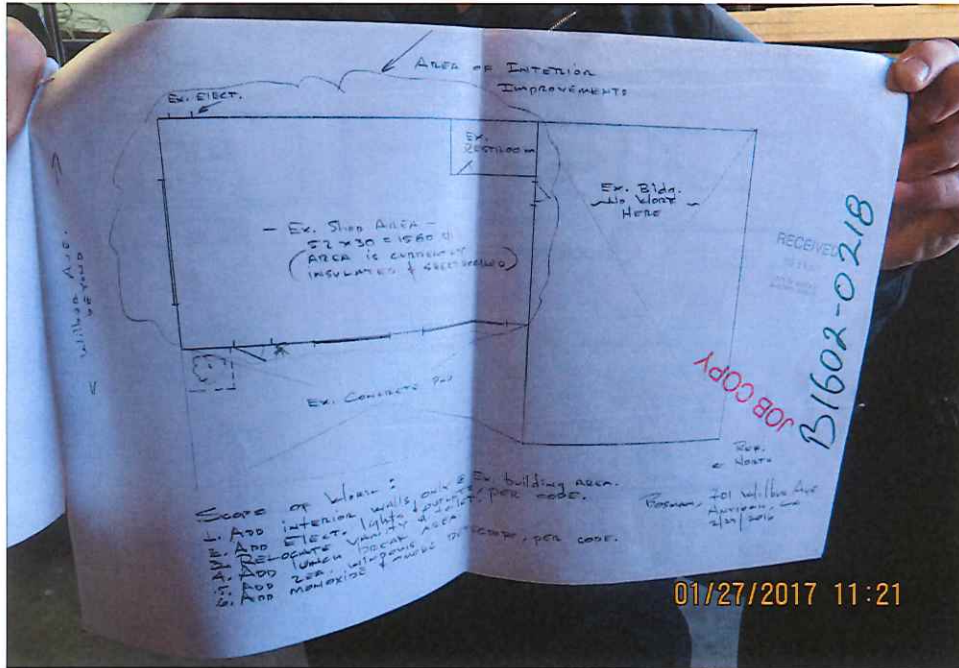 AREA OF INTERIOR
IMPROVEMENTS
EX. ELECT.
EX.
RESTROOM
EX. Bldg.
NO WORK
HERE
- EX. SHOP AREA -
52 x 30 = 1560
(AREA IS CURRENTLY
INSULATED & SHEETROCKED)
RECEIVED
Wilbur Ave.
BEYOND
EX. CONCRETE PAD
JOB COPY
B1602-0218
NORTH
SCOPE OF WORK:
1. ADD INTERIOR WALLS, ONLY @ EX. building AREA.
2. ADD ELECT. lights & outlets, PER CODE.
3. RELOCATE VANITY & toilet.
4. ADD LUNCH BREAK AREA
5. ADD 2EA. WINDOWS
6. ADD MONOXIDE & SMOKE DETECTORS, PER CODE.
701 Wilbur Ave
ANTIOCH,
01/27/2017 11:21